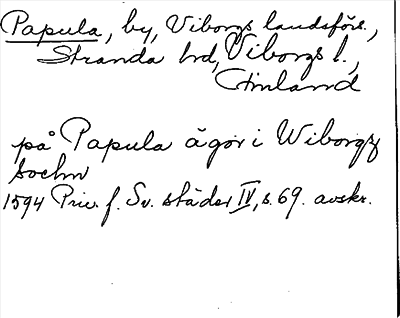 Papula, by, Viborgs landsförs.,
Stranda hd, Viborgs l.,
Finland
på Papula ägor i Wiborgz
sochn
1594 Priv. f. Sv. städer IV, s. 69. avskr.